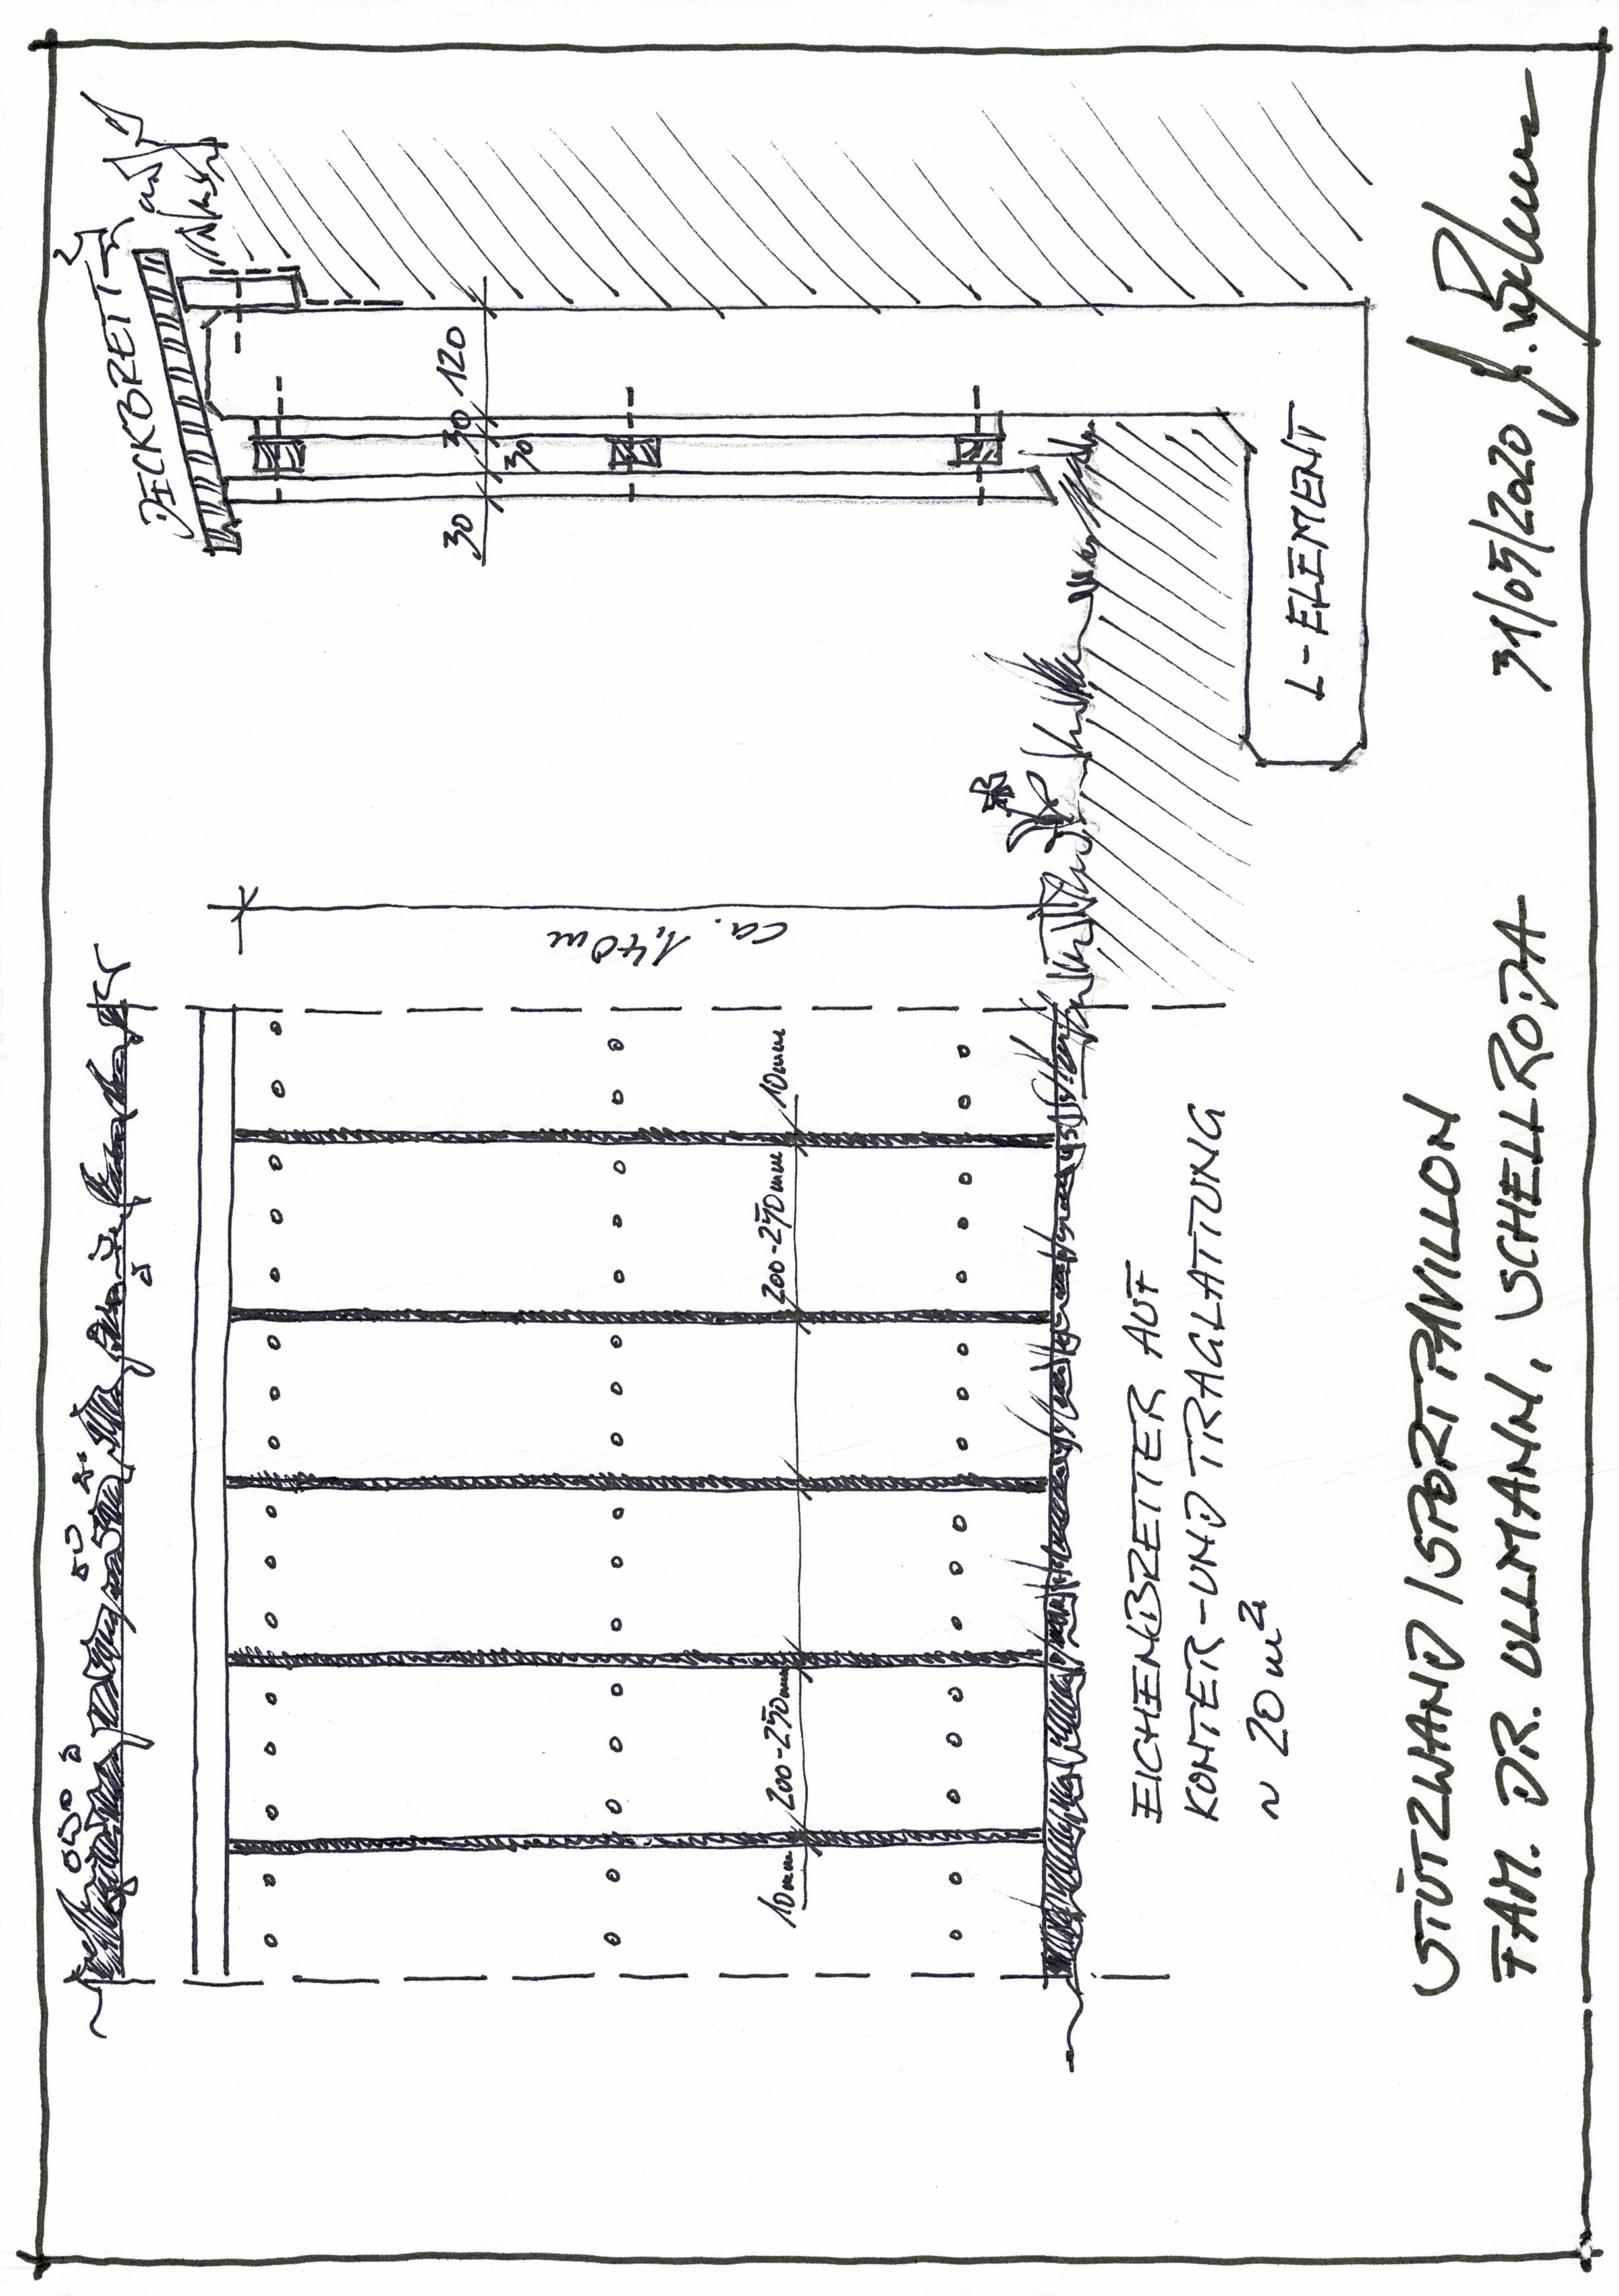 DECKBRETT
30
30
30
120
ca. 1,40 m
10mm
200-250mm
200-250mm
10mm
L-ELEMENT
EICHENBRETTER AUF
KONTER-UND TRAGLATTUNG
~ 20 m²
STÜTZWAND/SPORTPAVILLON
FAM. DR. ULLMANN, SCHELLRODA
31/05/2020